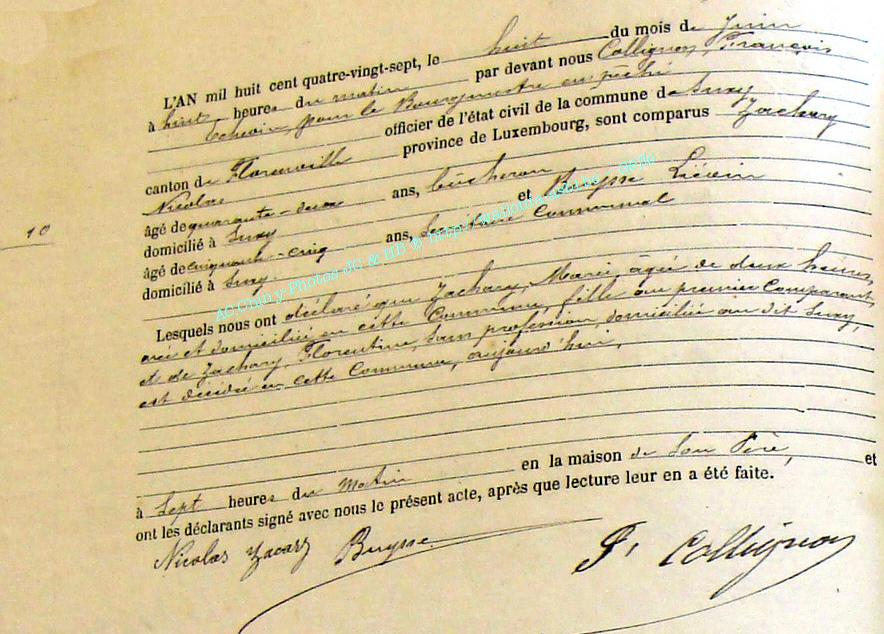 L'AN mil huit cent quatre-vingt-sept, le huit du mois de Juin
à huit heures du matin par devant nous Collignon, François
Echevin, pour le Bourgmestre empêché
officier de l'état civil de la commune de Suxy
canton de Florenville province de Luxembourg, sont comparus Zachary
Nicolas
âgé de quarante-deux ans, bûcheron
domicilié à Suxy et Buysse Liévin
âgé de cinquante-cinq ans, Secrétaire Communal
domicilié à Suxy.
10
Lesquels nous ont déclaré que Zachary, Marie, âgée de deux heures,
née et domiciliée en cette Commune, fille du premier Comparant,
et de Zachary, Florentine, Sans profession, domiciliée au dit Suxy,
est décédée en cette Commune, aujourd'hui,
à Sept heures du Matin en la maison de Son Père, et
ont les déclarants signé avec nous le présent acte, après que lecture leur en a été faite.
Nicolas Zacary Buysse F. Collignon